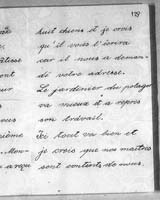 129
huit chiens et je crois
qu'il vous l'écrira
car il nous a deman-
dé votre adresse.
Le jardinier du potager
va mieux et a repris
son travail.
Ici tout va bien et
je crois que nos maîtres
sont contents de nous.